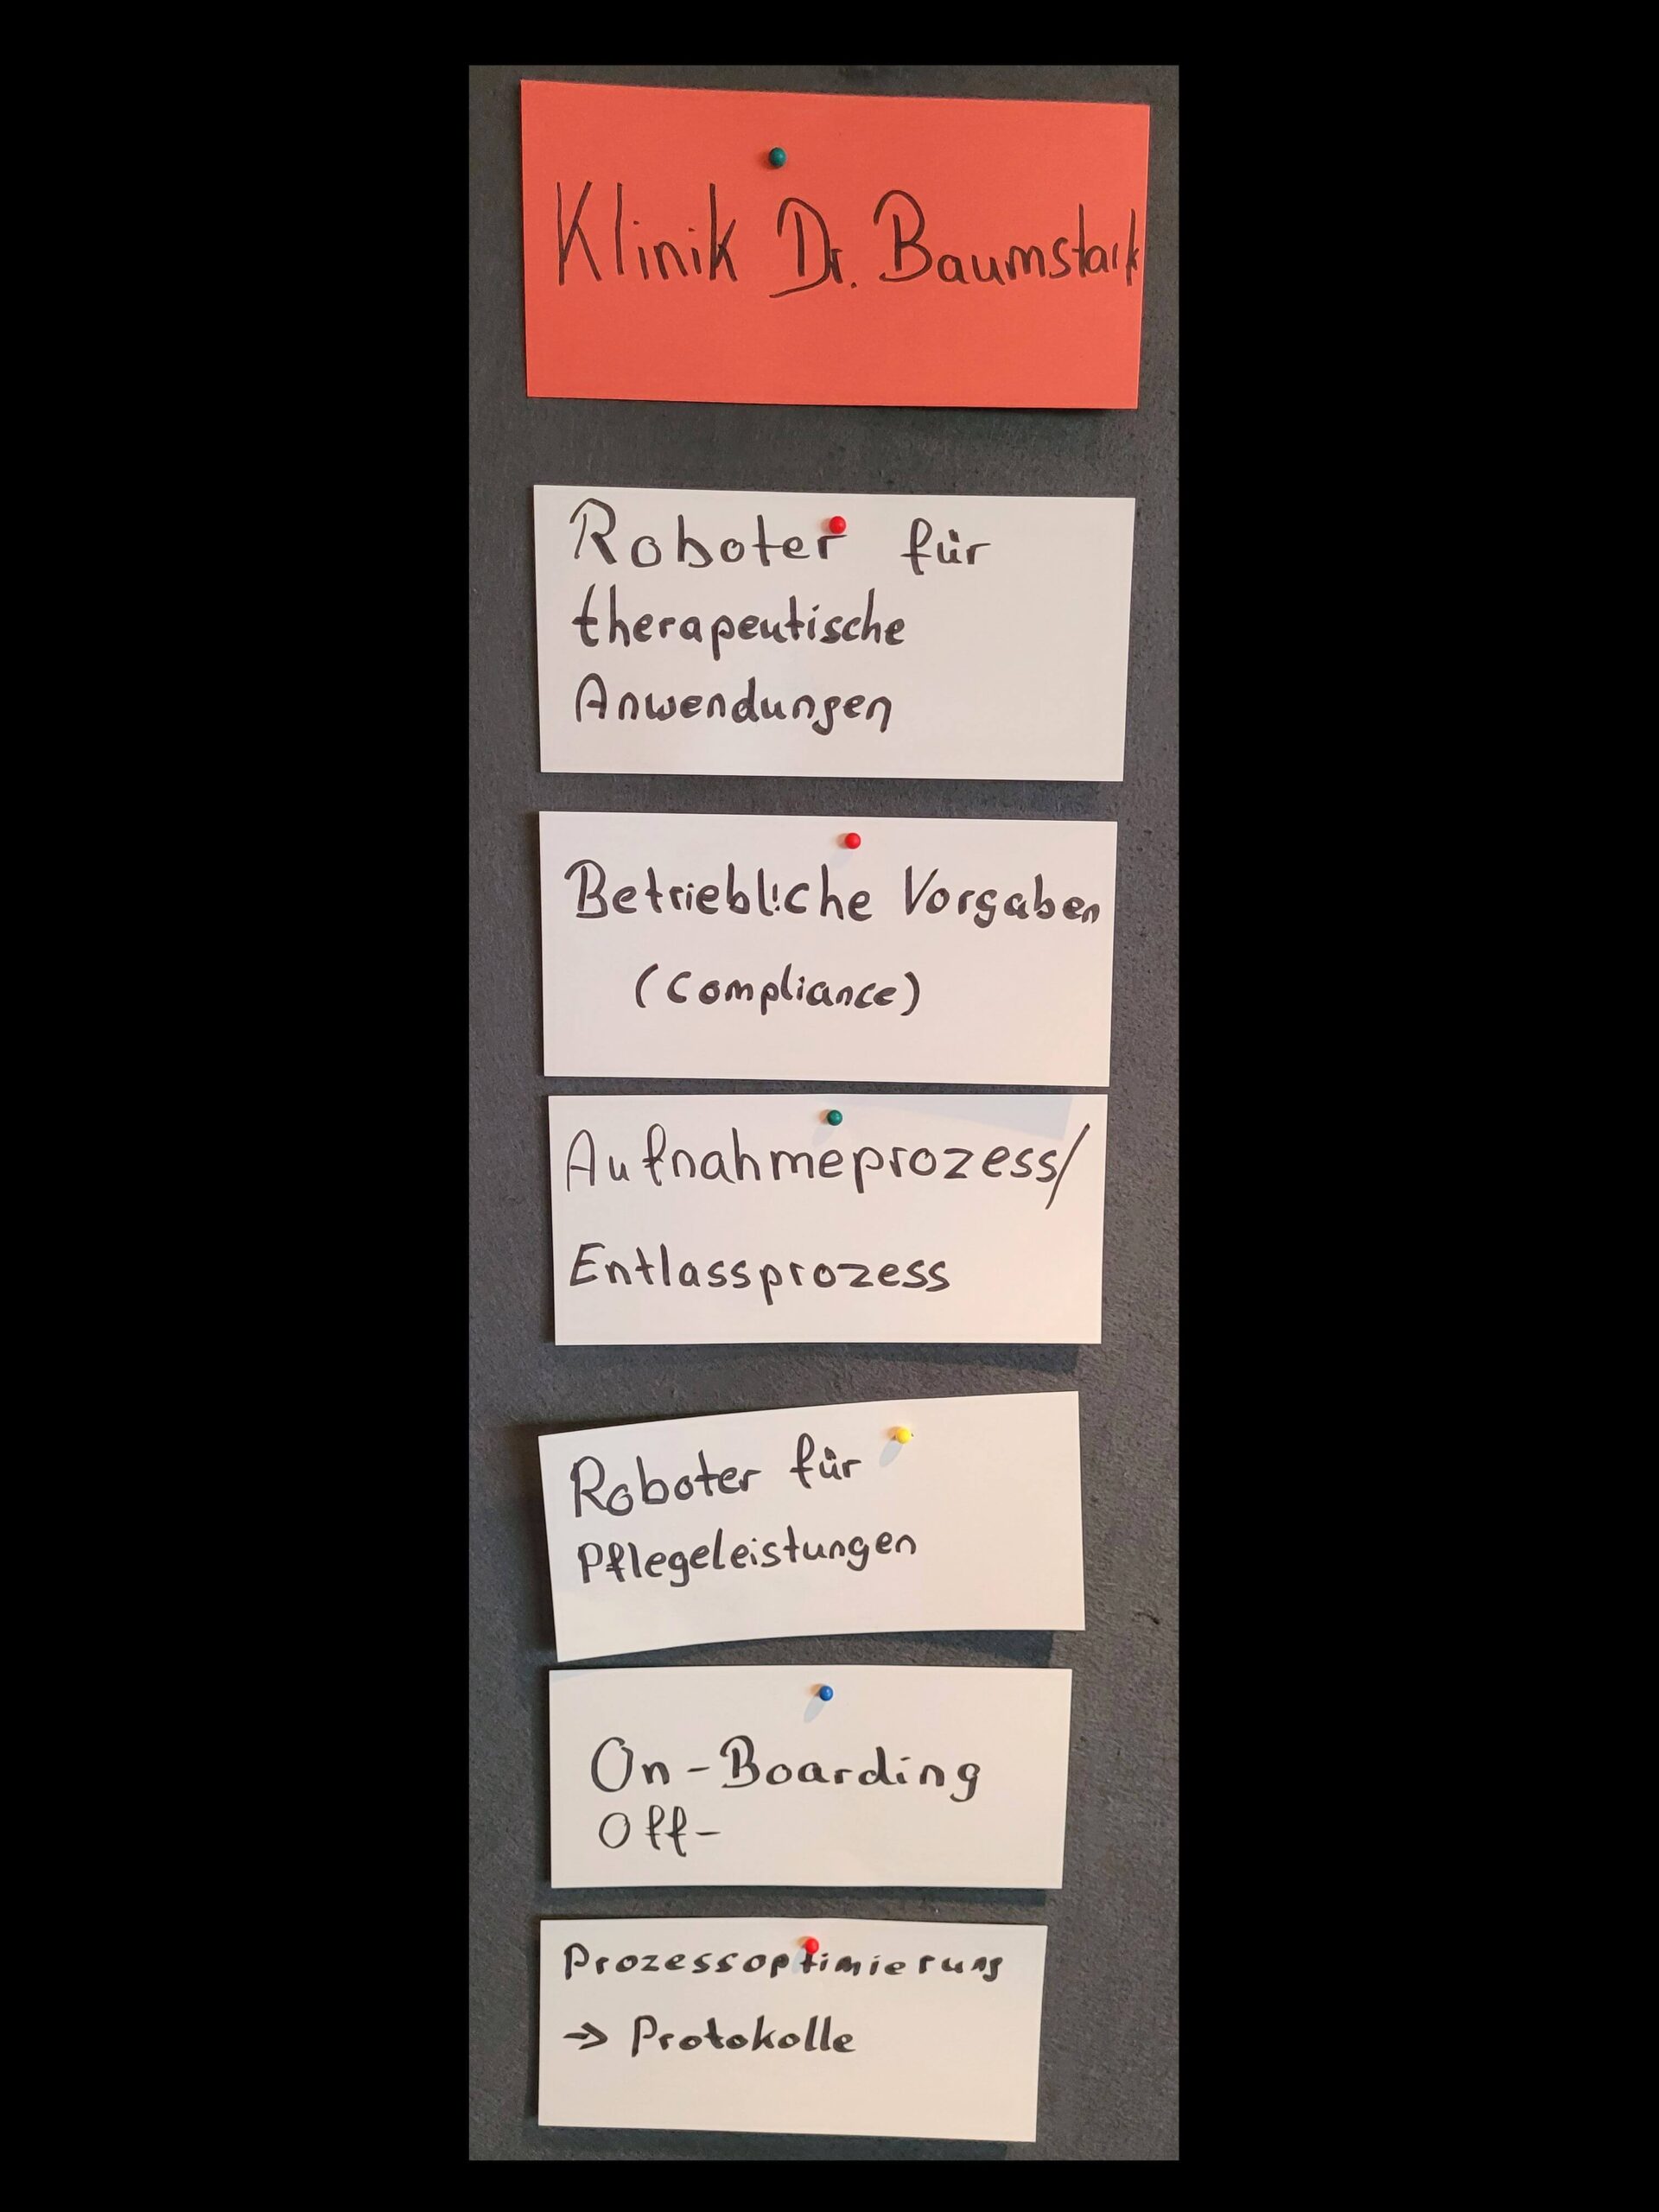 Klinik Dr. Baumstark
Roboter für
therapeutische
Anwendungen
Betriebliche Vorgaben
(Compliance)
Aufnahmeprozess/
Entlassprozess
Roboter für
Pflegeleistungen
On-Boarding
Off-
Prozessoptimierung
→ Protokolle